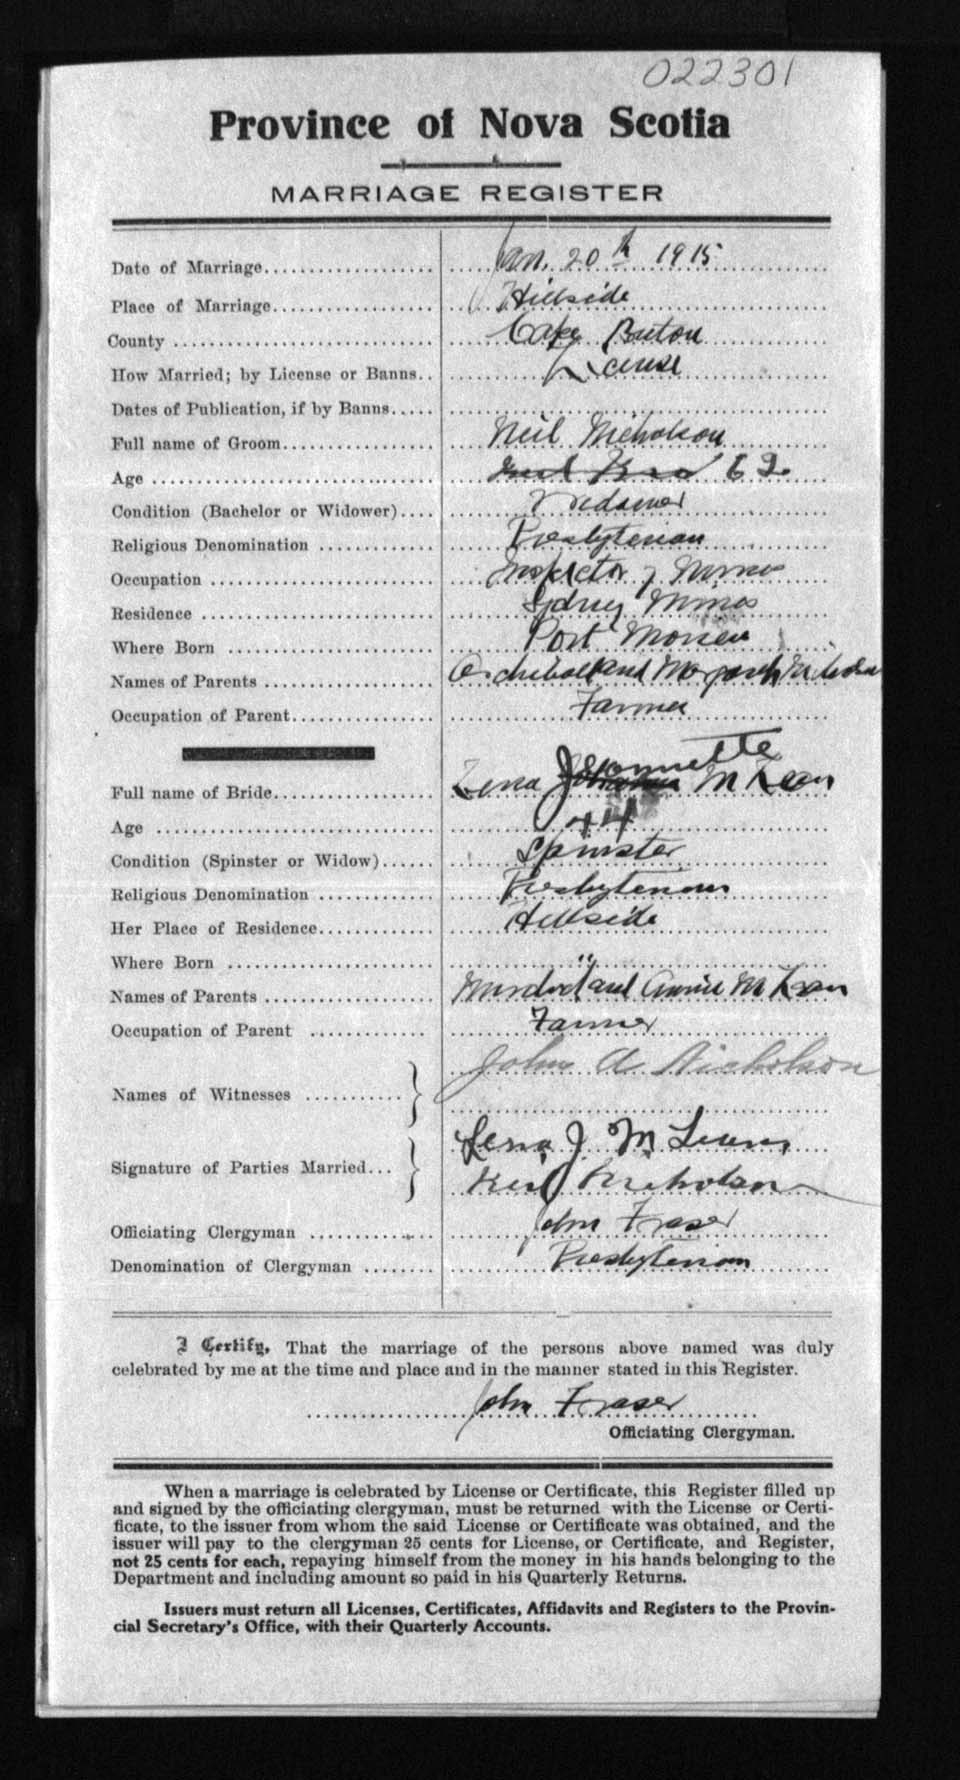 022301
Province of Nova Scotia
MARRIAGE REGISTER
Date of Marriage.................... Jan. 20th 1915
Place of Marriage................... Hillside
County .............................. Cape Breton
How Married; by License or Banns.. License
Dates of Publication, if by Banns.....
Full name of Groom.................. Neil Nicholson
Age .............................. 62
Condition (Bachelor or Widower).... Widower
Religious Denomination ............. Presbyterian
Occupation ......................... Inspector of Mines
Residence .......................... Sydney Mines
Where Born ........................ Port Morien
Names of Parents ................... Archibald and Margaret Nicholson
Occupation of Parent................ Farmer
Full name of Bride.................. Lena Jeannette McLean
Age ............................... 44
Condition (Spinster or Widow)...... Spinster
Religious Denomination ............. Presbyterian
Her Place of Residence............. Hillside
Where Born ........................ "
Names of Parents ................... Murdoch and Annie McLean
Occupation of Parent ............. Farmer
Names of Witnesses ........... John A Nicholson
Signature of Parties Married... Lena J. McLean
Neil Nicholson
Officiating Clergyman ............. John Fraser
Denomination of Clergyman ........ Presbyterian
I Certify, That the marriage of the persons above named was duly
celebrated by me at the time and place and in the manner stated in this Register.
John Fraser
Officiating Clergyman.
When a marriage is celebrated by License or Certificate, this Register filled up
and signed by the officiating clergyman, must be returned with the License or Certi-
ficate, to the issuer from whom the said License or Certificate was obtained, and the
issuer will pay to the clergyman 25 cents for License, or Certificate, and Register,
not 25 cents for each, repaying himself from the money in his hands belonging to the
Department and including amount so paid in his Quarterly Returns.
Issuers must return all Licenses, Certificates, Affidavits and Registers to the Provin-
cial Secretary's Office, with their Quarterly Accounts.